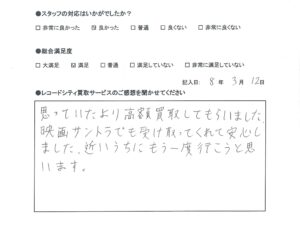 ●スタッフの対応はいかがでしたか?
□ 非常に良かった ☒ 良かった □ 普通 □ 良くない □ 非常に良くない
●総合満足度
□ 大満足 ☒ 満足 □ 普通 □ 満足していない □ 非常に満足していない
記入日: 8 年 3 月 12日
●レコードシティ買取サービスのご感想を聞かせてください
思っていたより高額買取してもらいました。
映画サントラでも受け取ってくれて安心し
ました、近いうちにもう一度行こうと思
います。